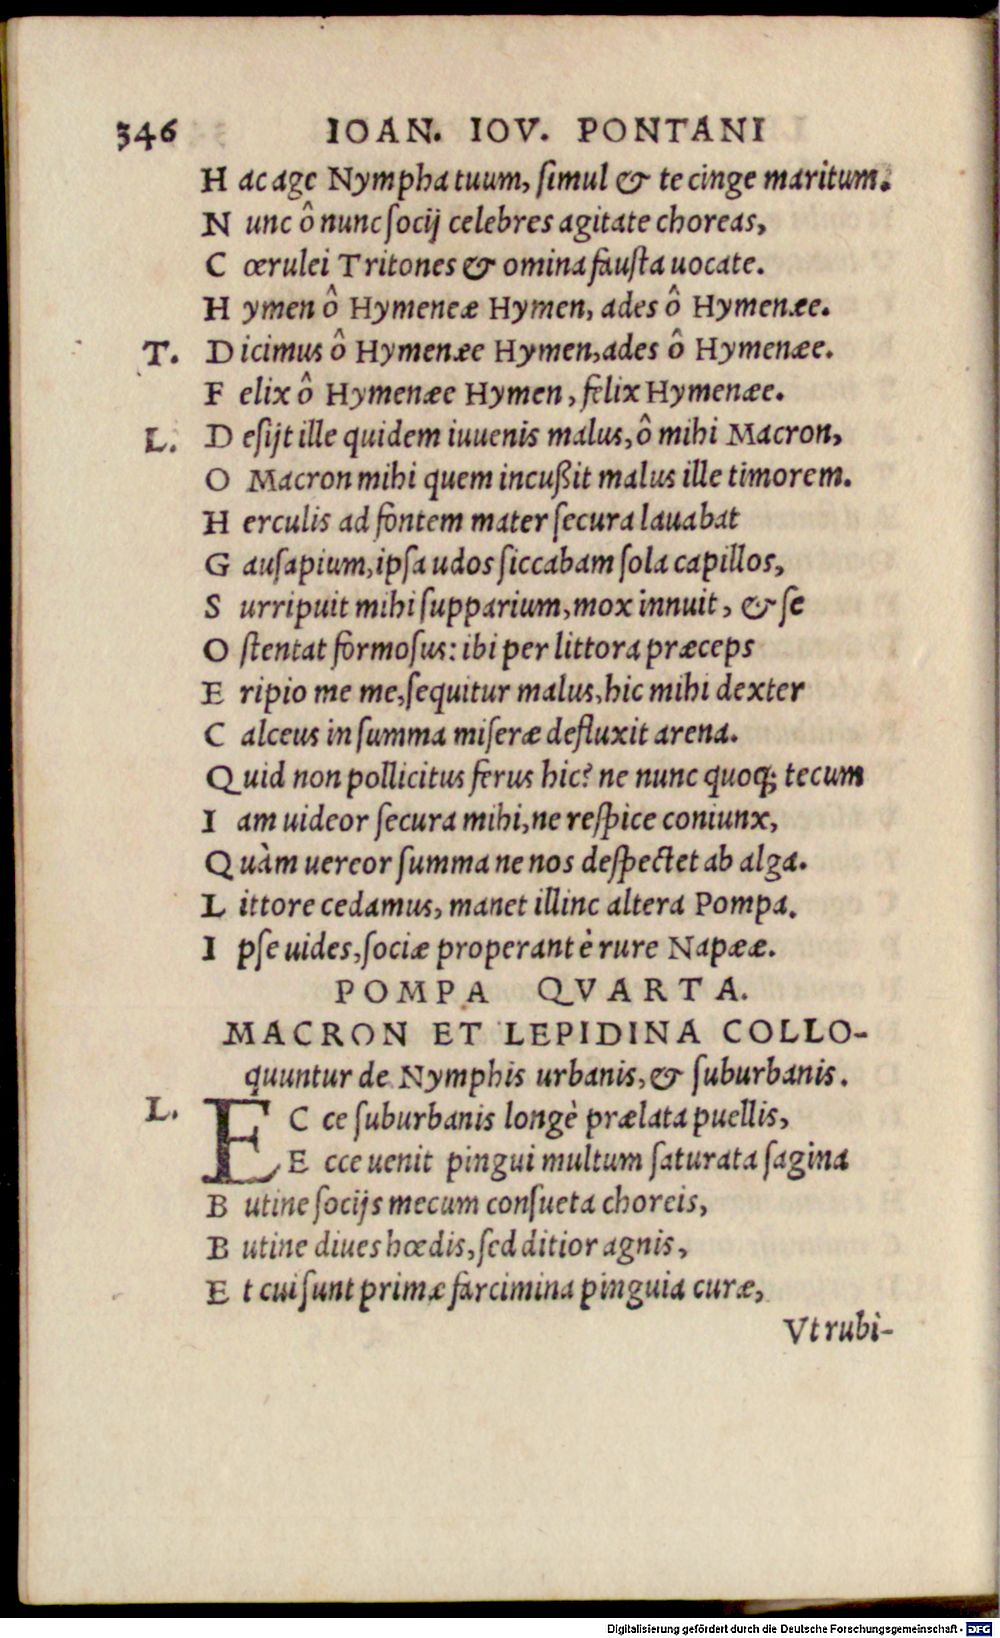 346 IOAN. IOV. PONTANI
H ac age Nympha tuum, simul & te cinge maritum.
N unc ô nunc socij celebres agitate choreas,
C œrulei Tritones & omina fausta uocate.
H ymen ô Hymeneæ Hymen, ades ô Hymenæe.
T. D icimus ô Hymenæe Hymen, ades ô Hymenæe.
F elix ô Hymenæe Hymen, felix Hymenæe.
L. D esijt ille quidem iuuenis malus, ô mihi Macron,
O Macron mihi quem incußit malus ille timorem.
H erculis ad fontem mater secura lauabat
G ausapium, ipsa udos siccabam sola capillos,
S urripuit mihi supparium, mox innuit, & se
O stentat formosus: ibi per littora præceps
E ripio me me, sequitur malus, hic mihi dexter
C alceus in summa miseræ defluxit arena.
Q uid non pollicitus ferus hic? ne nunc quoq; tecum
I am uideor secura mihi, ne respice coniunx,
Q uàm uereor summa ne nos despectet ab alga.
L ittore cedamus, manet illinc altera Pompa.
I pse uides, sociæ properant è rure Napææ.
POMPA QVARTA.
MACRON ET LEPIDINA COLLO-
quuntur de Nymphis urbanis, & suburbanis.
L. E C ce suburbanis longè prælata puellis,
E cce uenit pingui multum saturata sagina
B utine socijs mecum consueta choreis,
B utine diues hœdis, sed ditior agnis,
E t cui sunt primæ farcimina pinguia curæ,
Vt rubi-
Digitalisierung gefördert durch die Deutsche Forschungsgemeinschaft - DFG